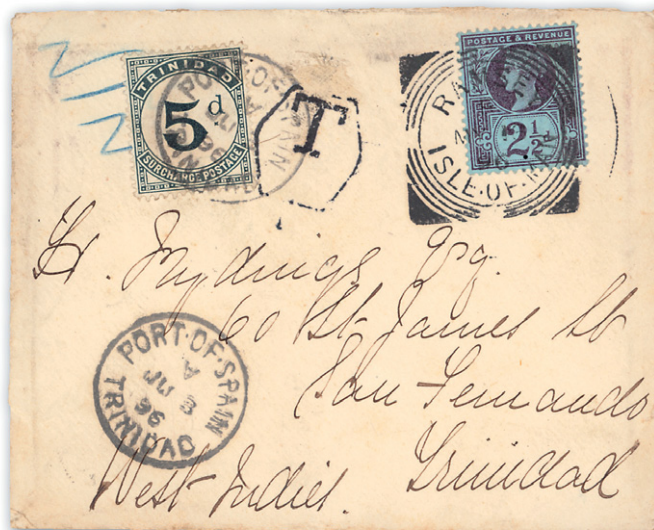 TRINIDAD
5d
SURCHARGE POSTAGE
T
POSTAGE & REVENUE
2½d
ISLE·OF·
Esq.
60 St James St
San Fernando
Trinidad
West Indies.
PORT·OF·SPAIN
A
JU
96
TRINIDAD